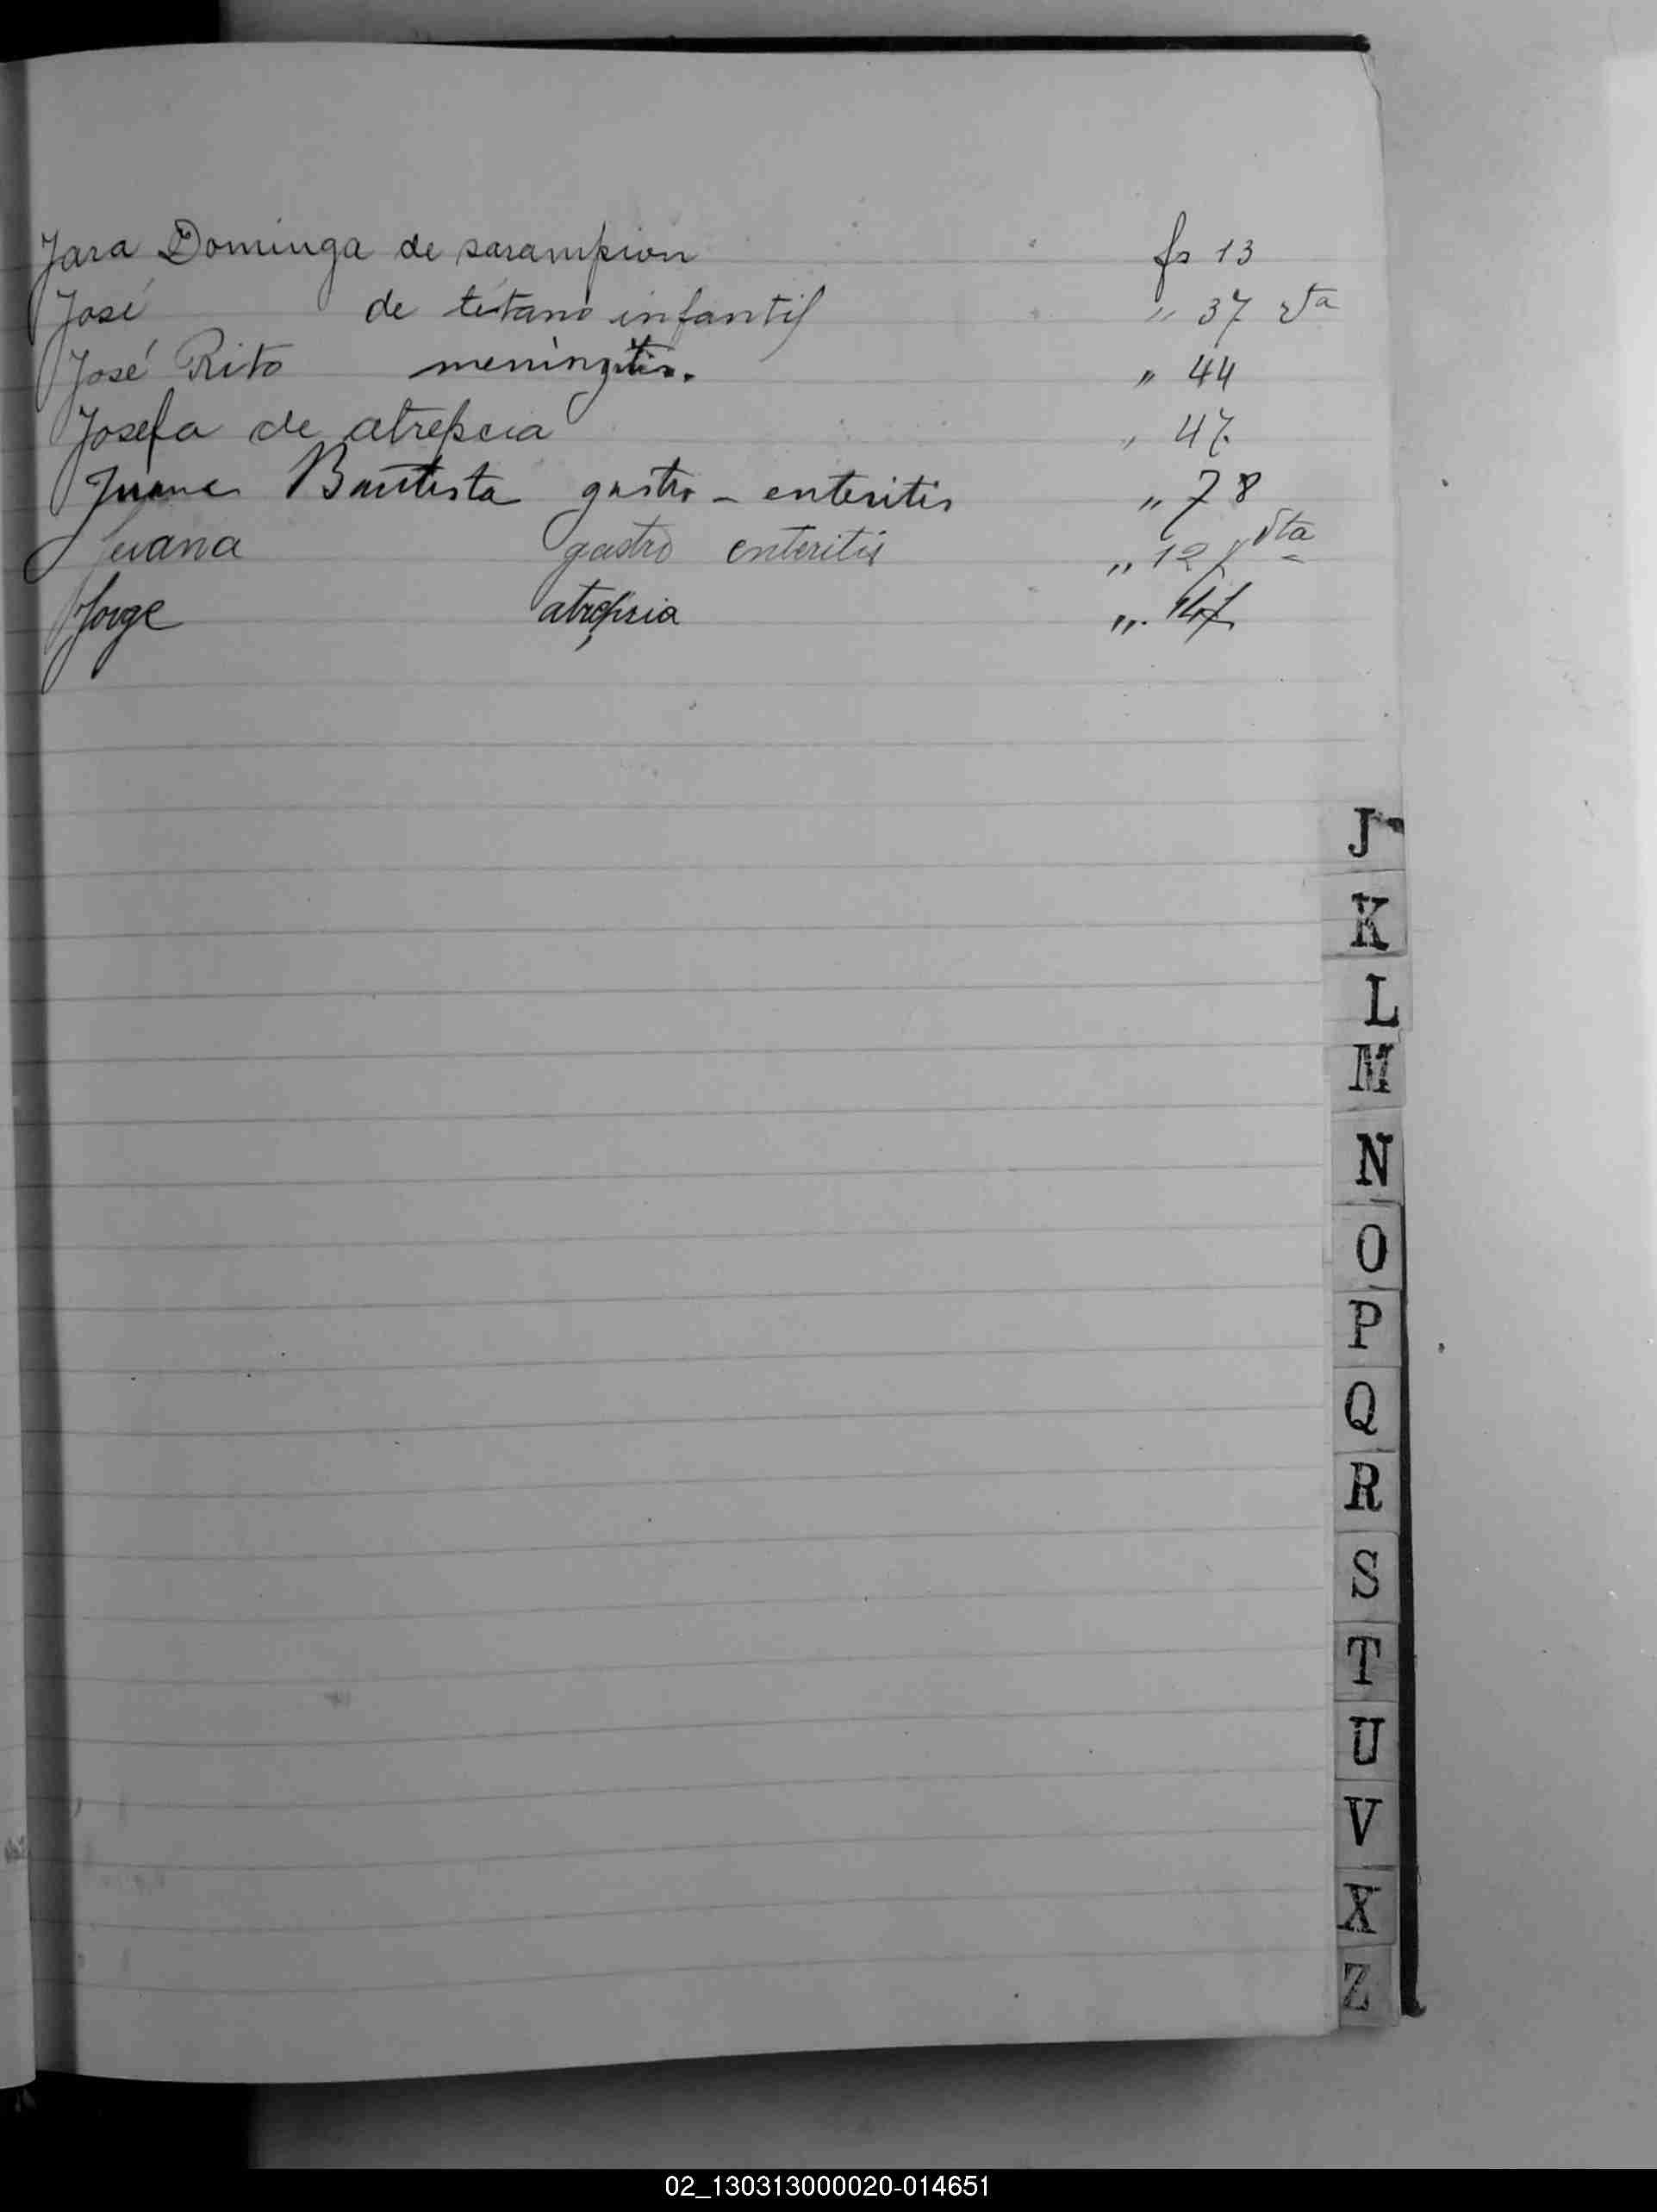 Jara Dominga de sarampion fs 13
José de tétano infantil " 37 vta
José Rito meningitis. " 44
Josefa de atrepcia " 47
Juana Bautista gastro - enteritis " 78
Juana gastro enteritis " vta
Jorge atrepsia "
J
K
L
M
N
O
P
Q
R
S
T
U
V
X
Z
02_130313000020-014651